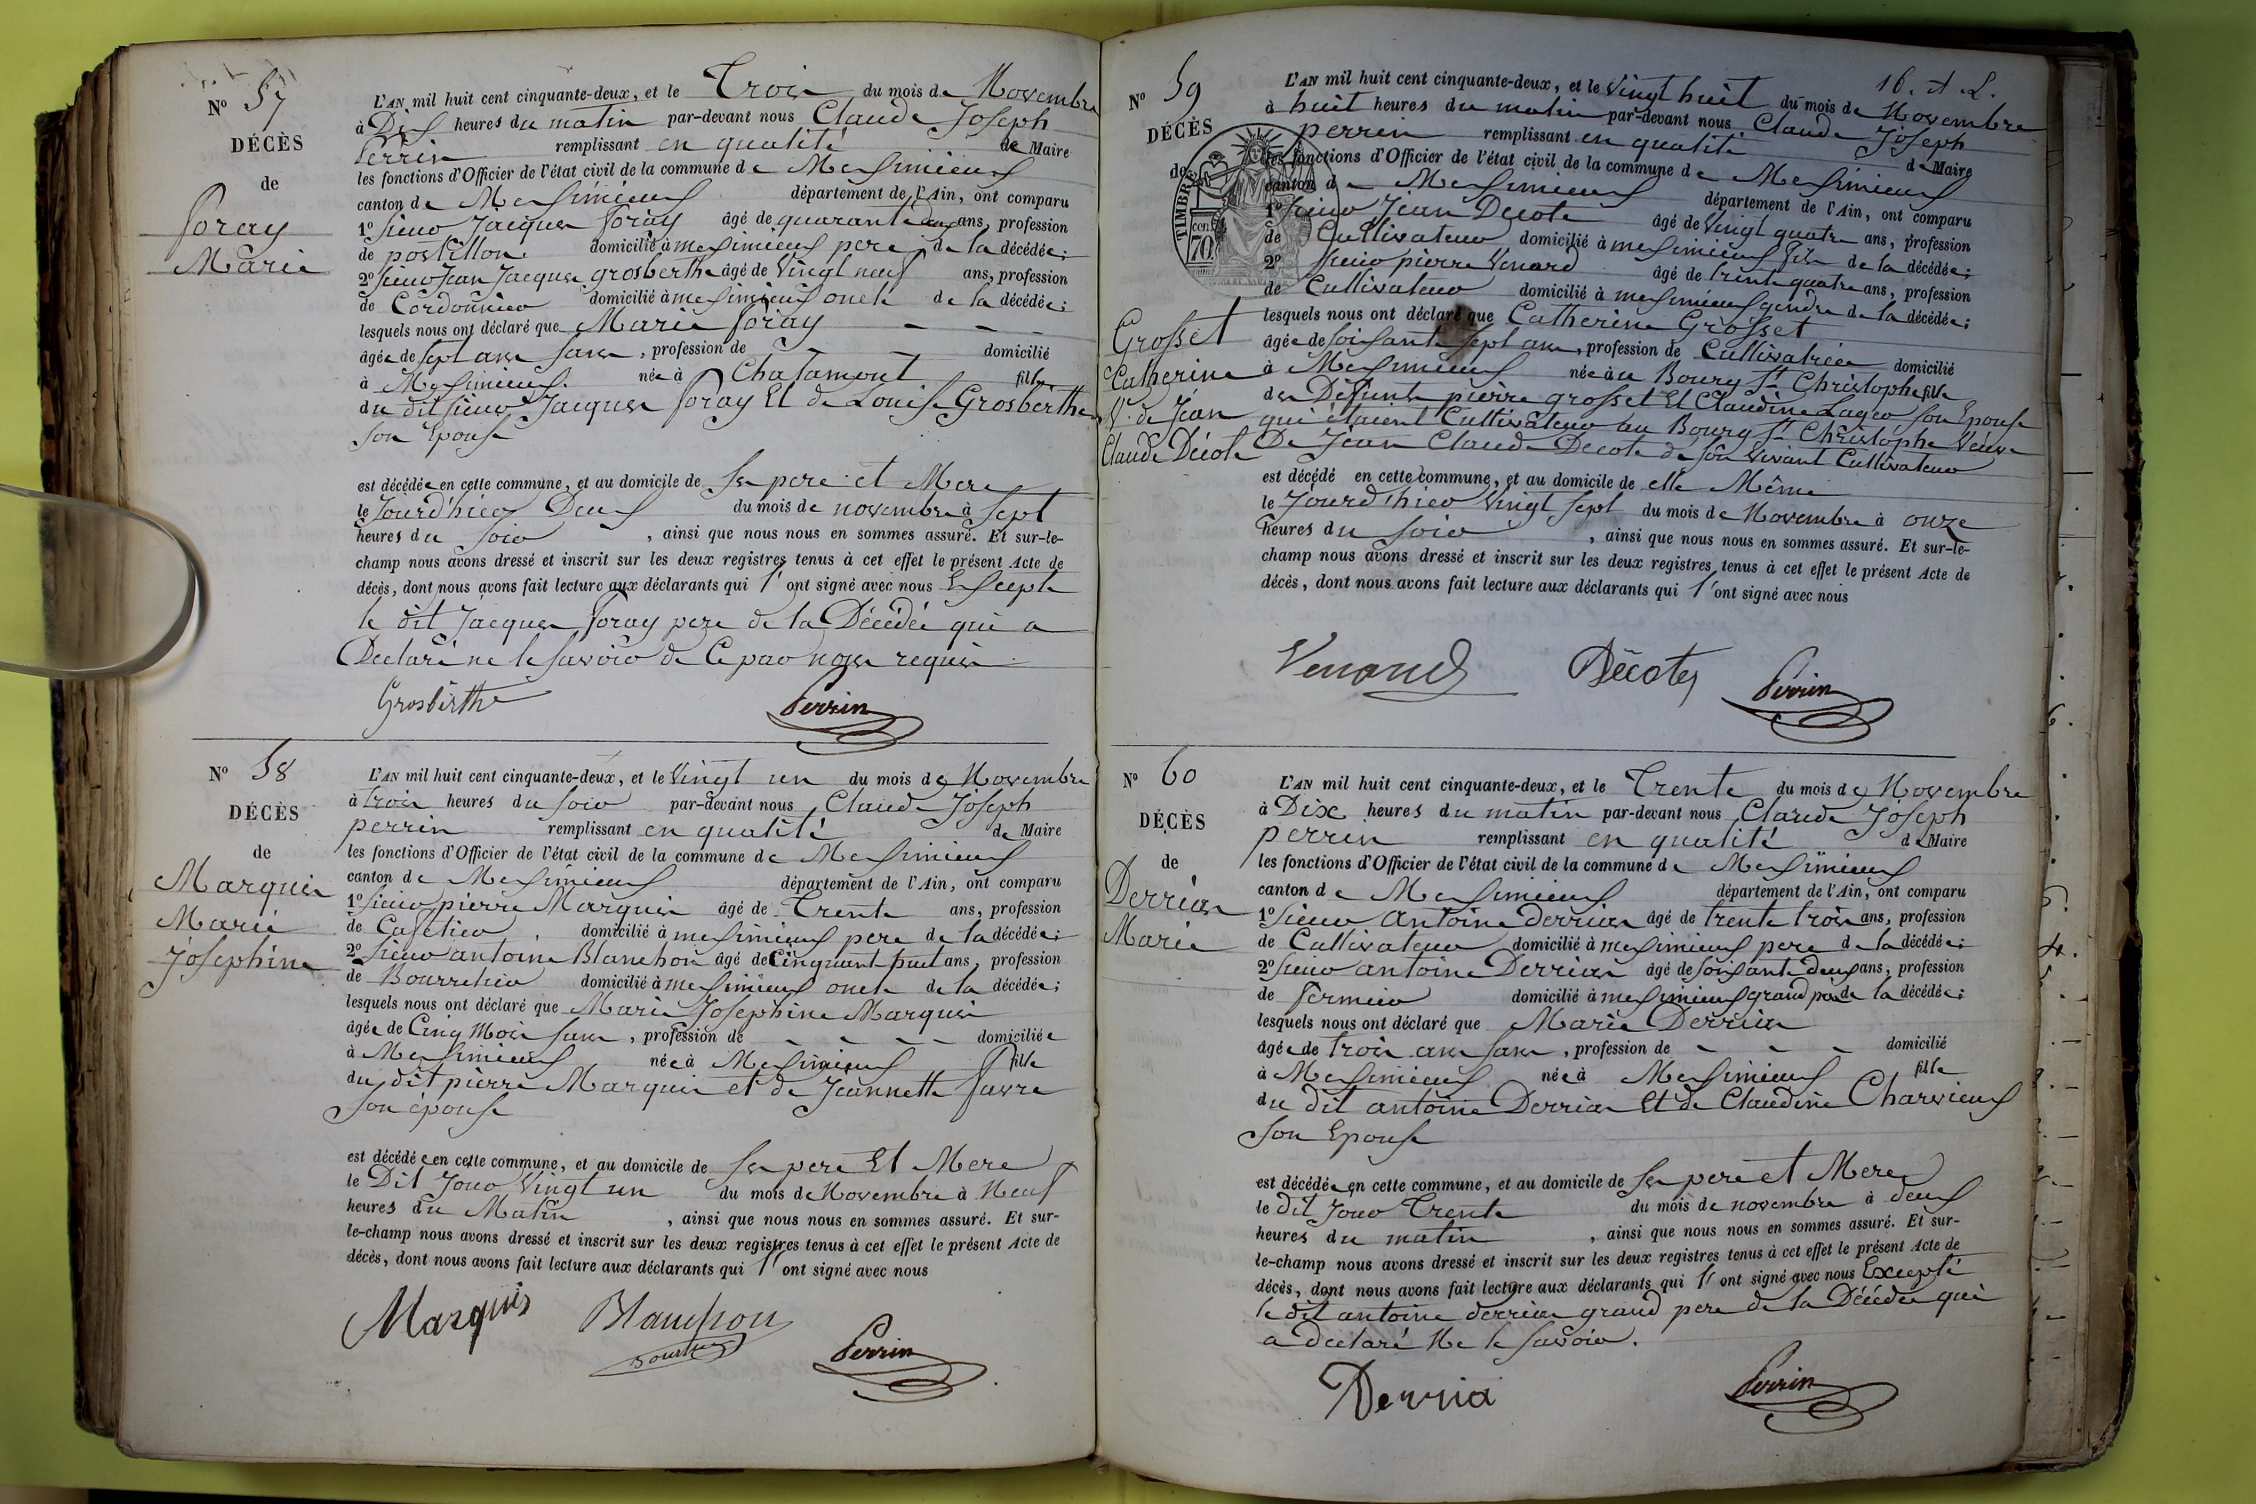 N° 57
DÉCÈS
de
Foray
Marie
L'AN mil huit cent cinquante-deux, et le Trois du mois de Novembre
à Dix heures du matin par-devant nous Claude Joseph
Perrin remplissant en qualité de Maire
les fonctions d'Officier de l'état civil de la commune de Meximieux
canton de Meximieux département de l'Ain, ont comparu
1° Sieur Jacques Foray âgé de quarante ans, profession
de postillon domicilié à meximieux pere de la décédée;
2° Sieur Jean Jacques grosberthe âgé de Vingt neuf ans, profession
de Cordonnier domicilié à meximieux oncle de la décédée;
lesquels nous ont déclaré que Marie Foray
âgée de sept ans sans, profession de domicilié
à Meximieux née à Chalamont fille
du dit sieur Jacques Foray Et de Louise Grosberthe
son Epouse
est décédée en cette commune, et au domicile de Ses pere et Mere
le Jourd'hier Deux du mois de novembre à Sept
heures du soir, ainsi que nous nous en sommes assuré. Et sur-le-
champ nous avons dressé et inscrit sur les deux registres tenus à cet effet le présent Acte de
décès, dont nous avons fait lecture aux déclarants qui l'ont signé avec nous Excepté
le dit Jacques Foray pere de la Décédée qui a
Declaré ne le savoir de ce par nous requis
Grosberthe Perrin
N° 58
DÉCÈS
de
Marquis
Marie
Josephine
L'AN mil huit cent cinquante-deux, et le Vingt un du mois de Novembre
à trois heures du soir par-devant nous Claude Joseph
perrin remplissant en qualité de Maire
les fonctions d'Officier de l'état civil de la commune de Meximieux
canton de Meximieux département de l'Ain, ont comparu
1° Sieur pierre Marquis âgé de Trente ans, profession
de Cafetier domicilié à meximieux pere de la décédée;
2° Sieur antoine Blanchon âgé de Cinquant huit ans, profession
de Bourrelier domicilié à meximieux oncle de la décédée;
lesquels nous ont déclaré que Marie Josephine Marquis
âgée de Cinq Mois sans, profession de domiciliée
à Meximieux née à Meximieux fille
du dit pierre Marquis et de Jeannette favre
son épouse
est décédée en cette commune, et au domicile de Ses pere Et Mere
le Dit Jour Vingt un du mois de Novembre à Neuf
heures du Matin, ainsi que nous nous en sommes assuré. Et sur-
le-champ nous avons dressé et inscrit sur les deux registres tenus à cet effet le présent Acte de
décès, dont nous avons fait lecture aux déclarants qui l'ont signé avec nous
Marquis Blanchon Perrin
16. A. L.
N° 59
DÉCÈS
de
TIMBRE
70
Grosset
Catherine
V. de Jean
Claude Décote
L'AN mil huit cent cinquante-deux, et le Vingt huit du mois de Novembre
à huit heures du matin par-devant nous Claude Joseph
perrin remplissant en qualité de Maire
les fonctions d'Officier de l'état civil de la commune de Meximieux
canton de Meximieux département de l'Ain, ont comparu
1° Sieur Jean Decote âgé de Vingt quatre ans, profession
de Cultivateur domicilié à meximieux fils de la décédée;
2° Sieur pierre Venard âgé de trente quatre ans, profession
de Cultivateur domicilié à meximieux gendre de la décédée;
lesquels nous ont déclaré que Catherine Grosset
âgée de soixante sept ans, profession de Cultivatrice domicilié
à Meximieux née au Bourg St Christophe fille
des Défunts pierre grosset Et Claudine Lager son Epouse
qui étaient Cultivateur au Bourg St Christophe Veuve
De Jean Claude Decote de son Vivant Cultivateur
est décédé en cette commune, et au domicile de elle Même
le Jourd'hier Vingt Sept du mois de Novembre à onze
heures du soir, ainsi que nous nous en sommes assuré. Et sur-le-
champ nous avons dressé et inscrit sur les deux registres tenus à cet effet le présent Acte de
décès, dont nous avons fait lecture aux déclarants qui l'ont signé avec nous
Venard Décote Perrin
N° 60
DÉCÈS
de
Derrias
Marie
L'AN mil huit cent cinquante-deux, et le Trente du mois de Novembre
à Dix heures du matin par-devant nous Claude Joseph
perrin remplissant en qualité de Maire
les fonctions d'Officier de l'état civil de la commune de Meximieux
canton de Meximieux département de l'Ain, ont comparu
1° Sieur Antoine Derrias âgé de trente trois ans, profession
de Cultivateur domicilié à meximieux pere de la décédée;
2° Sieur antoine Derrias âgé de soixante deux ans, profession
de Fermier domicilié à meximieux grand pere de la décédée;
lesquels nous ont déclaré que Marie Derrias
âgée de trois ans sans, profession de domicilié
à Meximieux née à Meximieux fille
du dit antoine Derrias Et de Claudine Charvieux
son Epouse
est décédée en cette commune, et au domicile de Ses pere et Mere
le dit Jour Trente du mois de novembre à deux
heures du matin, ainsi que nous nous en sommes assuré. Et sur-
le-champ nous avons dressé et inscrit sur les deux registres tenus à cet effet le présent Acte de
décès, dont nous avons fait lecture aux déclarants qui l'ont signé avec nous Excepté
le dit antoine derrias grand pere de la Décédée qui
a declaré Ne le savoir.
Derria Perrin